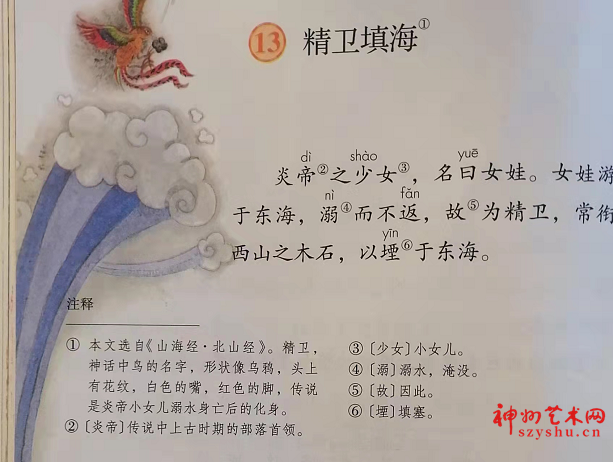 13 精卫填海①
dì shào yuē
炎帝②之少女③，名曰女娃。女娃游
nì fǎn
于东海，溺④而不返，故⑤为精卫，常衔
yīn
西山之木石，以堙⑥于东海。
注释
① 本文选自《山海经·北山经》。精卫，
神话中鸟的名字，形状像乌鸦，头上
有花纹，白色的嘴，红色的脚，传说
是炎帝小女儿溺水身亡后的化身。
②〔炎帝〕传说中上古时期的部落首领。
③〔少女〕小女儿。
④〔溺〕溺水，淹没。
⑤〔故〕因此。
⑥〔堙〕填塞。
神州艺术网
szyshu.cn